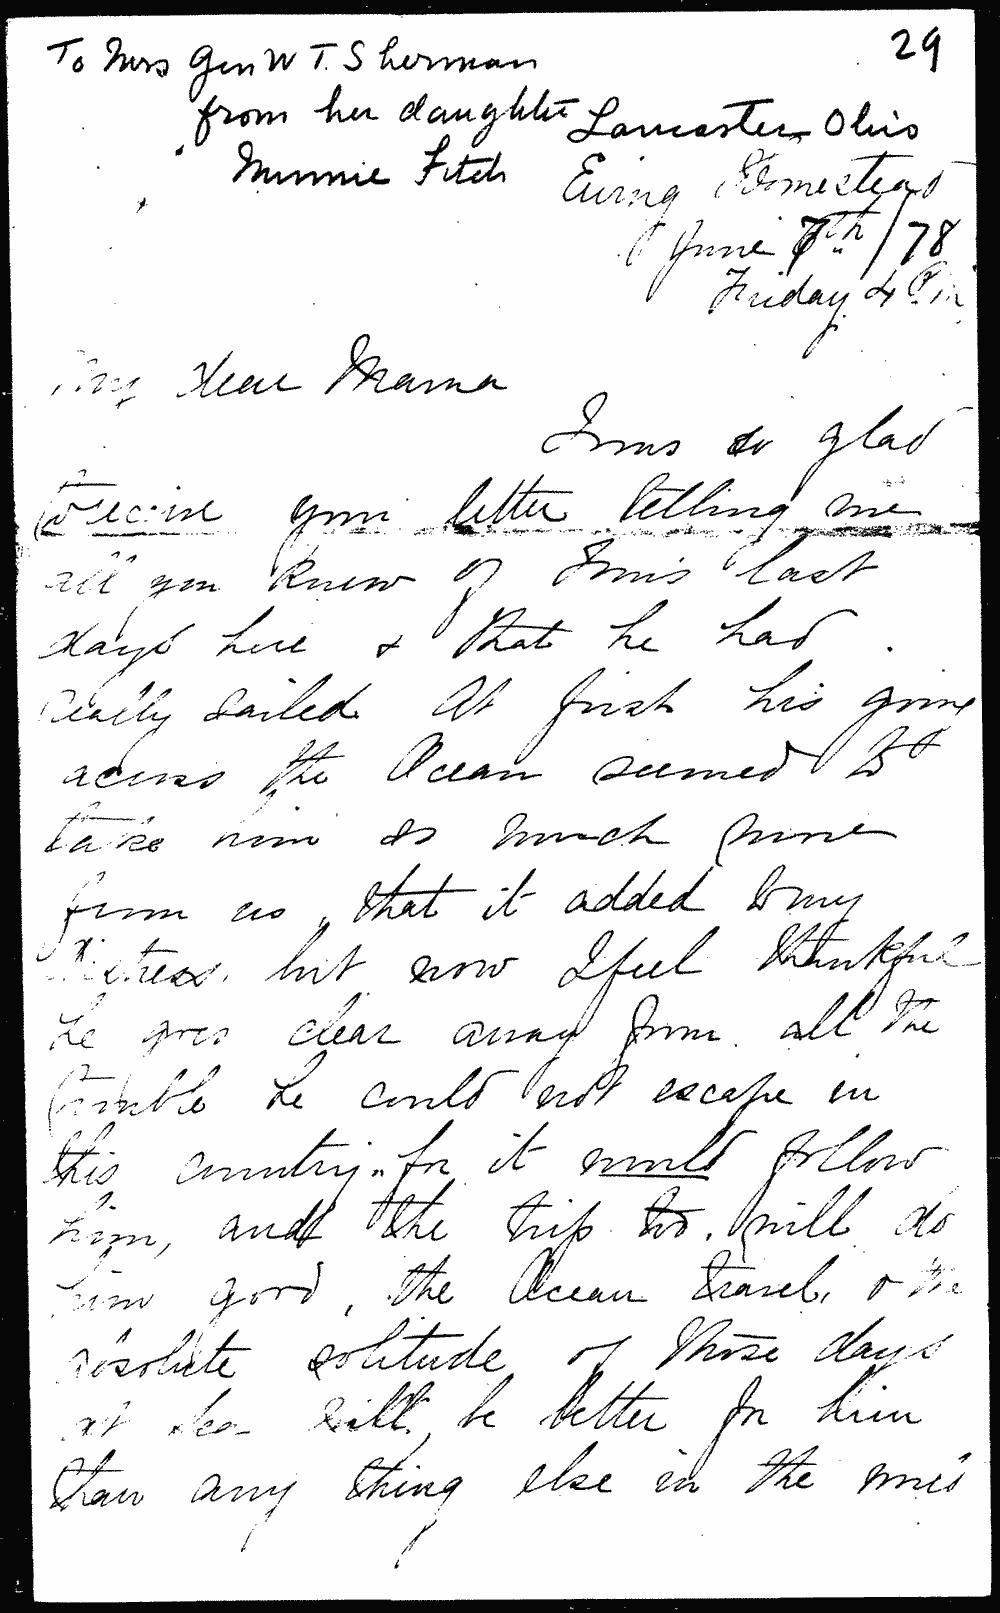 29
To Mrs Gen W T. Sherman
from her daughter
Minnie Fitch
Lancaster Ohio
Ewing Homestead
June 7th /78
Friday 4 P.m.
My dear Mama
I was so glad
to receive your letter telling me
all you knew of Tom's last
days here & that he had
really sailed. At first his going
across the Ocean seemed to
take him so much more
from us, that it added to my
distress. but now I feel thankful
he goes clear away from all the
trouble he could not escape in
this country. for it would follow
him, and the trip too. will do
him good, the Ocean travel, & the
absolute solitude of those days
at sea will, be better for him
than any thing else in the world